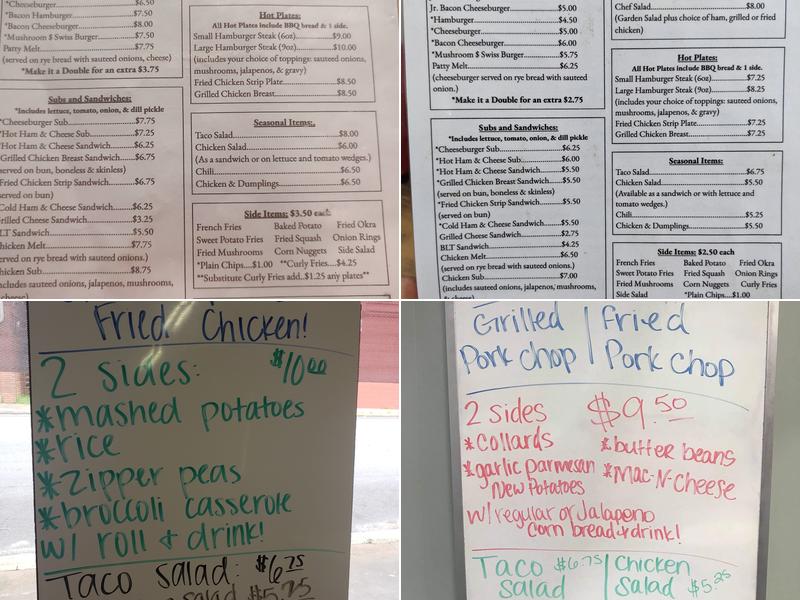 *Cheeseburger...$6.50
*Bacon Hamburger...$7.50
*Bacon Cheeseburger...$8.00
*Mushroom $ Swiss Burger...$7.50
Patty Melt...$7.75
(served on rye bread with sauteed onions, cheese)
*Make it a Double for an extra $3.75
Subs and Sandwiches:
*Includes lettuce, tomato, onion, & dill pickle
*Cheeseburger Sub...$7.75
*Hot Ham & Cheese Sub...$7.25
*Hot Ham & Cheese Sandwich...$6.25
*Grilled Chicken Breast Sandwich...$6.75
served on bun, boneless & skinless)
Fried Chicken Strip Sandwich...$6.75
served on bun)
*Cold Ham & Cheese Sandwich...$6.25
Grilled Cheese Sandwich...$3.25
BLT Sandwich...$5.50
Chicken Melt...$7.75
served on rye bread with sauteed onions.)
Chicken Sub...$8.75
includes sauteed onions, jalapenos, mushrooms,
cheese)
Hot Plates:
All Hot Plates include BBQ bread & 1 side.
Small Hamburger Steak (6oz)...$9.00
Large Hamburger Steak (9oz)...$10.00
(includes your choice of toppings: sauteed onions,
mushrooms, jalapenos, & gravy)
Fried Chicken Strip Plate...$8.50
Grilled Chicken Breast...$8.50
Seasonal Items:
Taco Salad...$8.00
Chicken Salad...$6.00
(As a sandwich or on lettuce and tomato wedges.)
Chili...$6.50
Chicken & Dumplings...$6.50
Side Items: $3.50 each
French Fries Baked Potato Fried Okra
Sweet Potato Fries Fried Squash Onion Rings
Fried Mushrooms Corn Nuggets Side Salad
*Plain Chips....$1.00 **Curly Fries...$4.25
**Substitute Curly Fries add..$1.25 any plates**
Jr. Bacon Cheeseburger...$5.00
*Hamburger...$4.50
*Cheeseburger...$5.00
*Bacon Cheeseburger...$6.00
*Mushroom $ Swiss Burger...$5.75
Patty Melt...$6.25
(cheeseburger served on rye bread with sauteed
onion.)
*Make it a Double for an extra $2.75
Subs and Sandwiches:
*Includes lettuce, tomato, onion, & dill pickle
*Cheeseburger Sub...$6.25
*Hot Ham & Cheese Sub...$6.00
*Hot Ham & Cheese Sandwich...$5.50
*Grilled Chicken Breast Sandwich...$5.50
(served on bun, boneless & skinless)
*Fried Chicken Strip Sandwich...$5.50
(served on bun)
*Cold Ham & Cheese Sandwich...$5.50
Grilled Cheese Sandwich...$2.75
BLT Sandwich...$4.25
Chicken Melt...$6.50
(served on rye bread with sauteed onions.)
Chicken Sub...$7.00
(includes sauteed onions, jalapenos, mushrooms,
& cheese)
Chef Salad...$8.00
(Garden Salad plus choice of ham, grilled or fried
chicken)
Hot Plates:
All Hot Plates include BBQ bread & 1 side.
Small Hamburger Steak (6oz)...$7.25
Large Hamburger Steak (9oz)...$8.25
(includes your choice of toppings: sauteed onions,
mushrooms, jalapenos, & gravy)
Fried Chicken Strip Plate...$7.25
Grilled Chicken Breast...$7.25
Seasonal Items:
Taco Salad...$6.75
Chicken Salad...$5.50
(Available as a sandwich or with lettuce and
tomato wedges.)
Chili...$5.25
Chicken & Dumplings...$5.50
Side Items: $2.50 each
French Fries Baked Potato Fried Okra
Sweet Potato Fries Fried Squash Onion Rings
Fried Mushrooms Corn Nuggets Curly Fries
Side Salad *Plain Chips...$1.00
Fried Chicken!
2 sides: $10.00
*mashed potatoes
*rice
*zipper peas
*broccoli casserole
w/ roll & drink!
Taco salad: $6.75
salad $5.25
Grilled Pork chop | Fried Pork Chop
2 sides $9.50
*collards *butter beans
*garlic parmesan New Potatoes *Mac-N-Cheese
w/regular or Jalapeno
corn bread & drink!
Taco Salad $6.75 | Chicken Salad $5.25